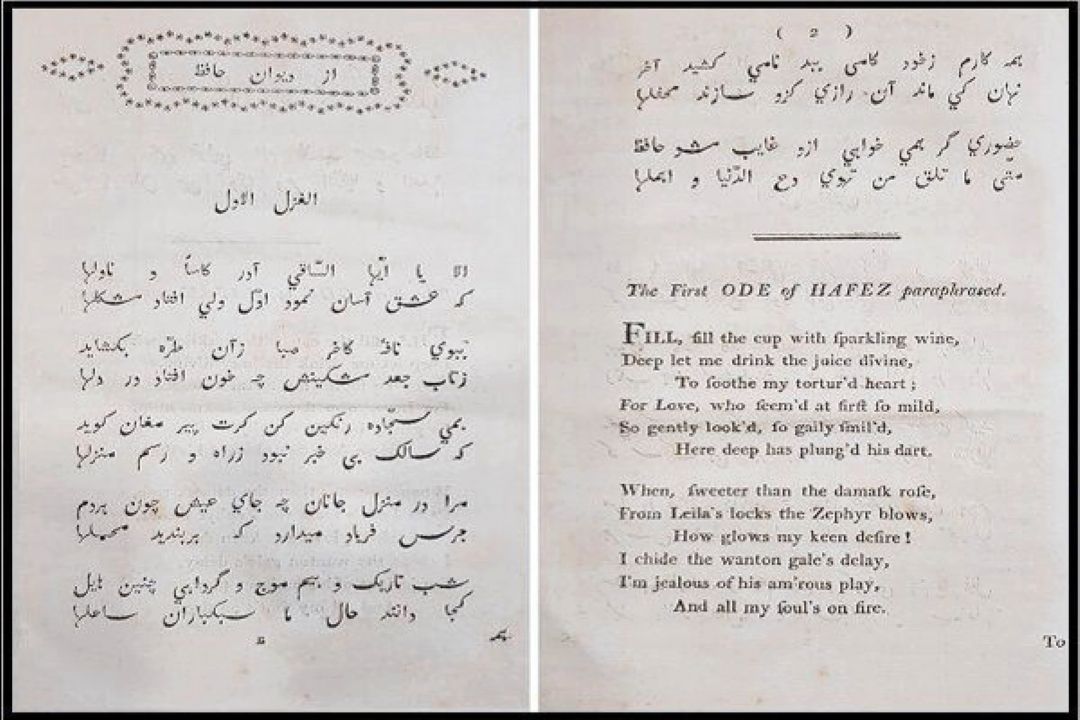 از دیوان حافظ
الغزل الاول
الا یا ایّها السّاقي آدر کاساً و ناولها
که عشق آسان نمود اوّل ولي افتاد مشکلها
ببوي نافهٔ کاخر صبا زآن طرّه بکشاید
زتاب جعد مشکینش چه خون افتاد در دلها
بمي سجّاده رنکین کن کرت پیر مغان کوید
که سالک بي خبر نبود زراه و رسم منزلها
مرا در منزل جانان چه جاي عیش چون هردم
جرس فریاد میدارد که بربندید محملها
شب تاریک و بیم موج و گردابي چنین هایل
کجا دانند حال ما سبکباران ساحلها
B
همه
( 2 )
همه کارم زخود کامي ببد نامي کشید آخر
نهان کي ماند آن رازي کزو سازند محفلها
حضوري گر همي خواهي ازو غایب مشو حافظ
متّی ما تلق من تهوي دع الدّنیا و اهملها
The First ODE of HAFEZ paraphrased.
FILL, fill the cup with ſparkling wine,
Deep let me drink the juice divine,
To ſoothe my tortur'd heart;
For Love, who ſeem'd at firſt ſo mild,
So gently look'd, ſo gaily ſmil'd,
Here deep has plung'd his dart.
When, ſweeter than the damaſk roſe,
From Leila's locks the Zephyr blows,
How glows my keen deſire!
I chide the wanton gale's delay,
I'm jealous of his am'rous play,
And all my ſoul's on fire.
To